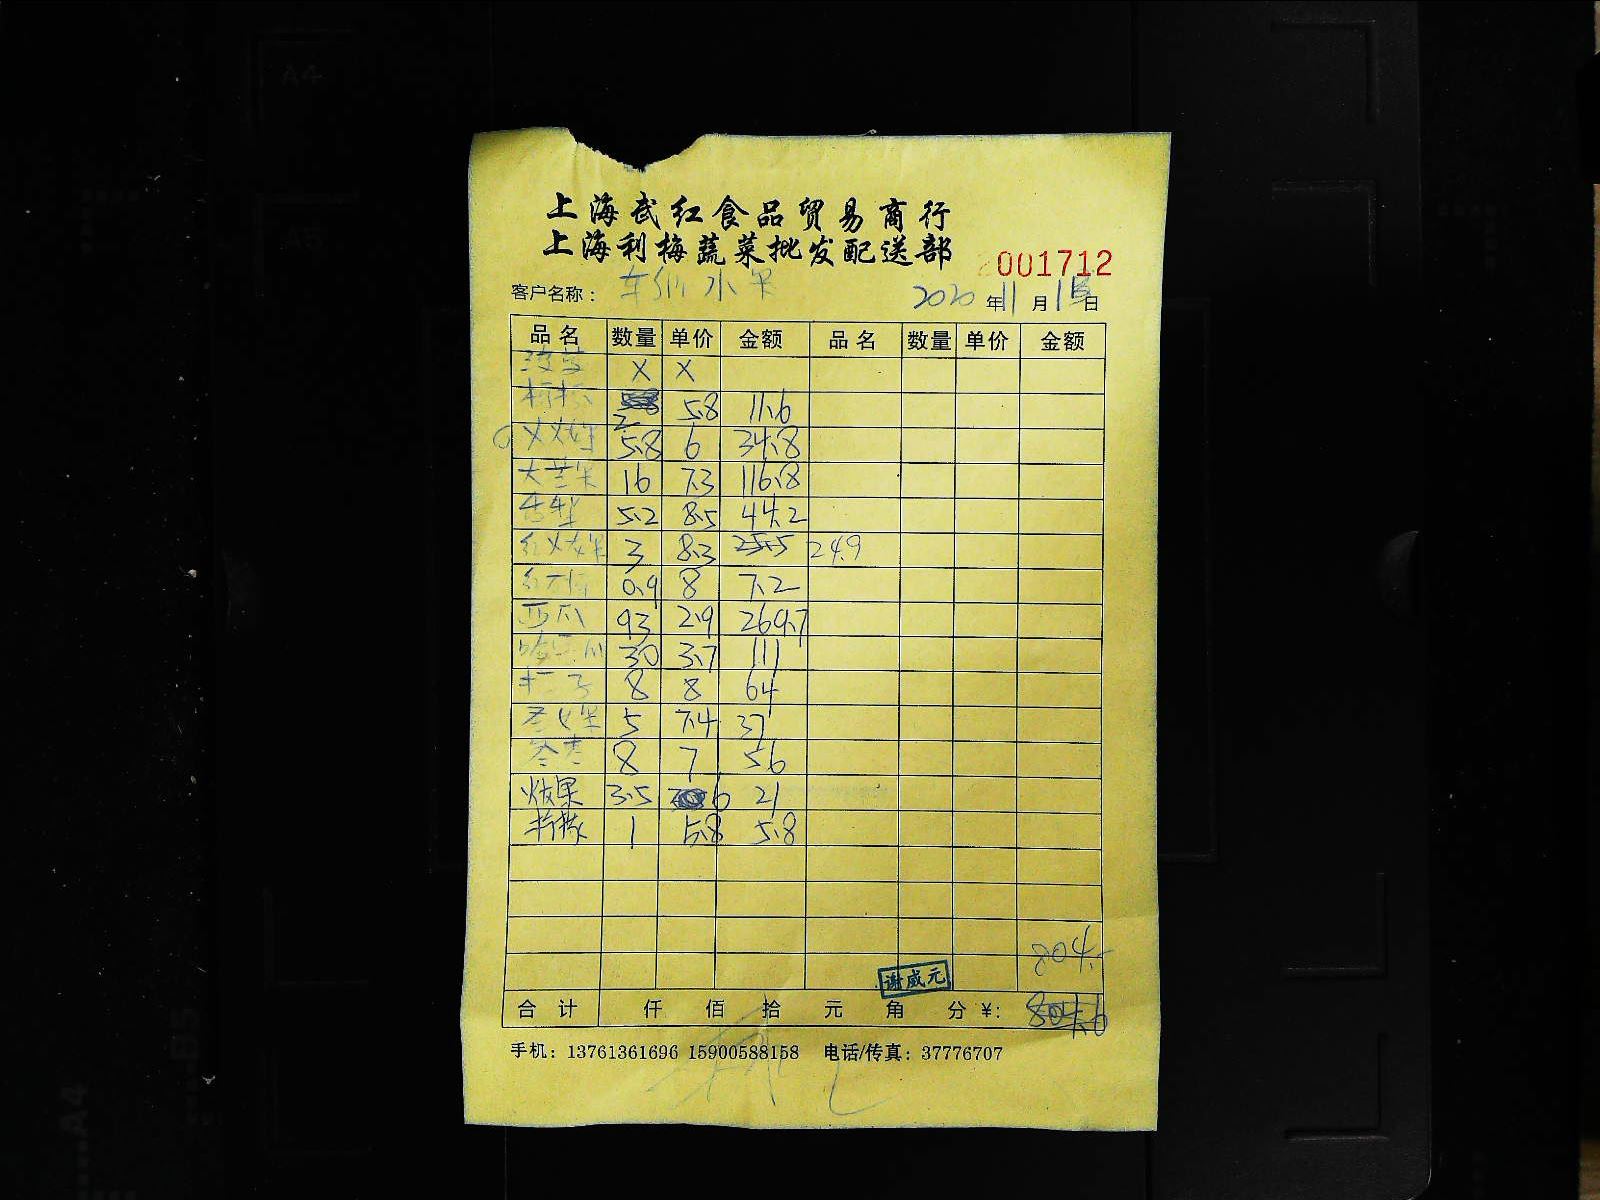 上海武红食品贸易商行
上海利梅蔬菜批发配送部
2001712
客户名称： 水果 2020年11月1日
品名 数量 单价 金额 品名 数量 单价 金额
菠萝 X X
柠檬 2 5.8 11.6
5.8 6 34.8
大芒果 16 7.3 116.8
香梨 5.2 8.5 44.2
红火龙果 3 8.3 25.5 24.9
0.9 8 7.2
西瓜 93 2.9 269.7
哈密瓜 30 3.7 111
8 8 64
圣女果 5 7.4 37
冬枣 8 7 56
3.5 6 21
柠檬 1 5.8 5.8
804.
谢威元
合计 仟 佰 拾 元 角 分 ¥: 804.6
手机：13761361696 15900588158 电话/传真：37776707